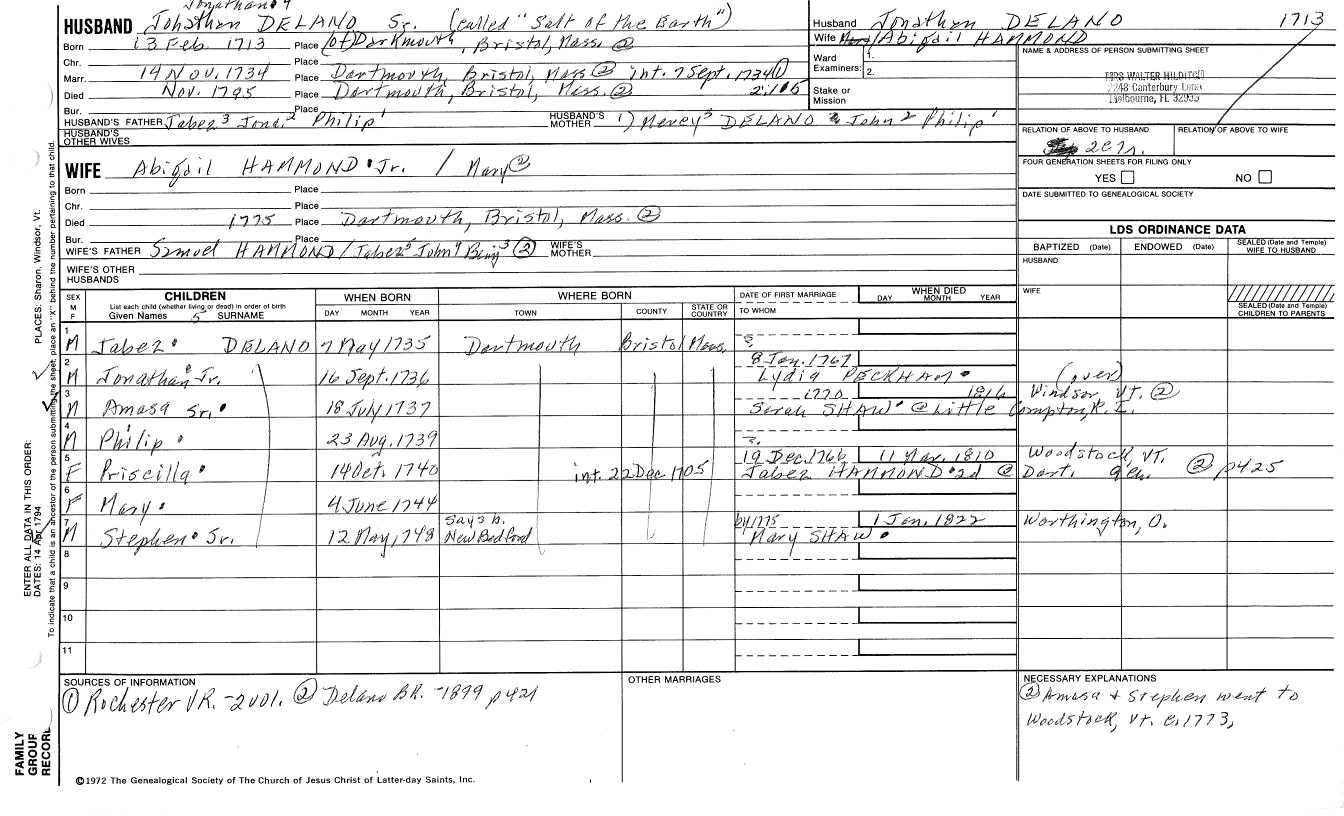 Jonathan 4
HUSBAND Johathan DELANO Sr. (called "Salt of the Earth")
Born 13 Feb. 1713 Place (of) Dartmouth, Bristol, Mass. ②
Chr. Place
Marr. 14 Nov. 1734 Place Dartmouth, Bristol, Mass ② int. 7 Sept. 1734 ①
Died Nov. 1795 Place Dartmouth, Bristol, Mass. ②
Bur. Place
HUSBAND'S FATHER Jabez 3 Jona. 2 Philip 1 HUSBAND'S MOTHER 1) Mercy 3 DELANO John 2 Philip 1
HUSBAND'S OTHER WIVES
Husband Jonathan DELANO 1713
Wife / Abigail HAMMOND
Ward Examiners: 1.
2.
Stake or Mission
NAME & ADDRESS OF PERSON SUBMITTING SHEET
MRS WALTER HILDITCH
2248 Canterbury Lane
Melbourne, FL 32935
RELATION OF ABOVE TO HUSBAND RELATION OF ABOVE TO WIFE
FOUR GENERATION SHEETS FOR FILING ONLY
YES NO
DATE SUBMITTED TO GENEALOGICAL SOCIETY
WIFE Abigail HAMMOND Jr. / Mary ②
Born Place
Chr. Place
Died 1775 Place Dartmouth, Bristol, Mass. ②
Bur. Place
WIFE'S FATHER Samuel HAMMOND / Jabez 5 John 4 Benj 3 ② WIFE'S MOTHER
WIFE'S OTHER HUSBANDS
LDS ORDINANCE DATA
BAPTIZED (Date) ENDOWED (Date) SEALED (Date and Temple) WIFE TO HUSBAND
HUSBAND
WIFE
SEALED (Date and Temple) CHILDREN TO PARENTS
SEX M F CHILDREN WHEN BORN WHERE BORN DATE OF FIRST MARRIAGE WHEN DIED
List each child (whether living or dead) in order of birth
Given Names 5 SURNAME DAY MONTH YEAR TOWN COUNTY STATE OR COUNTRY TO WHOM DAY MONTH YEAR
1 M Jabez DELANO 7 May 1735 Dartmouth Bristol Mass.
8 Jan. 1767
2 M Jonathan Jr. 16 Sept. 1736 Lydia PECKHAM (over)
1770 1816 Windsor VT. ②
3 M Amasa Sr. 18 July 1737 Sarah SHAW @ Little Compton, R.I.
4 M Philip 23 Aug. 1739
19 Dec. 1766 11 Mar. 1810 Woodstock, VT.
5 F Priscilla 14 Oct. 1740 int. 22 Dec 1705 Jabez HAMMOND 2d @ Dart. ② p425
6 F Mary 4 June 1744
says b. by 1775 1 Jan. 1822 Worthington, O.
7 M Stephen Sr. 12 May 1748 New Bedford Mary SHAW
8
9
10
11
SOURCES OF INFORMATION
① Rochester VR. -2001. ② Delano BR. -1899 p421
OTHER MARRIAGES
NECESSARY EXPLANATIONS
② Amasa & Stephen went to
Woodstock, Vt. c. 1773,
©1972 The Genealogical Society of The Church of Jesus Christ of Latter-day Saints, Inc.
FAMILY GROUP RECORD
ENTER ALL DATA IN THIS ORDER:
DATES: 14 Apr 1794
PLACES: Sharon, Windsor, Vt.
To indicate that a child is an ancestor of the person submitting the sheet, place an "X" behind the number pertaining to that child.